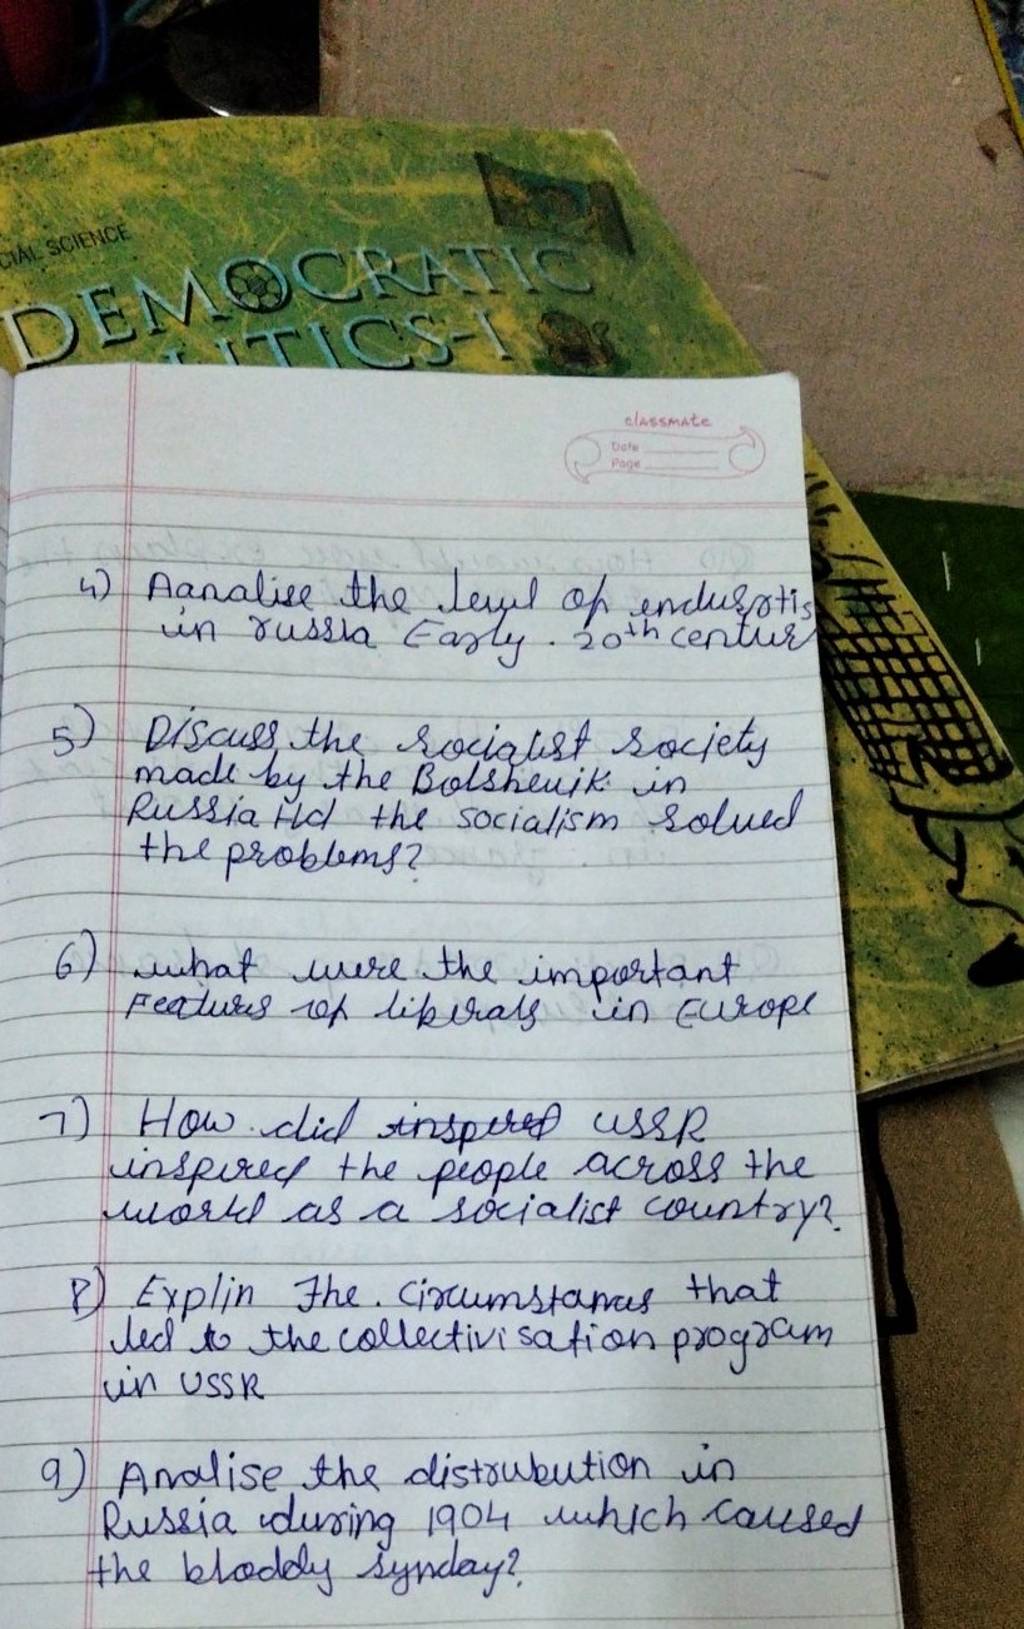 CIAL SCIENCE
DEMOCRATIC
LITICS-I
classmate
Date
Page
4) Aanalise the level of endusrtis
in russia Early . 20th centur
5) Discuss the socialist society
made by the Bolshevik in
Russia Hd the socialism solved
the problems?
6) what were the important
Features of liberals in Europe
7) How did inspired USSR
inspired the people across the
world as a socialist country?
8) Explin The . Circumstances that
led to the collectivisation program
in USSR
9) Analise the distrubution in
Russia during 1904 which caused
the bloddy synday?